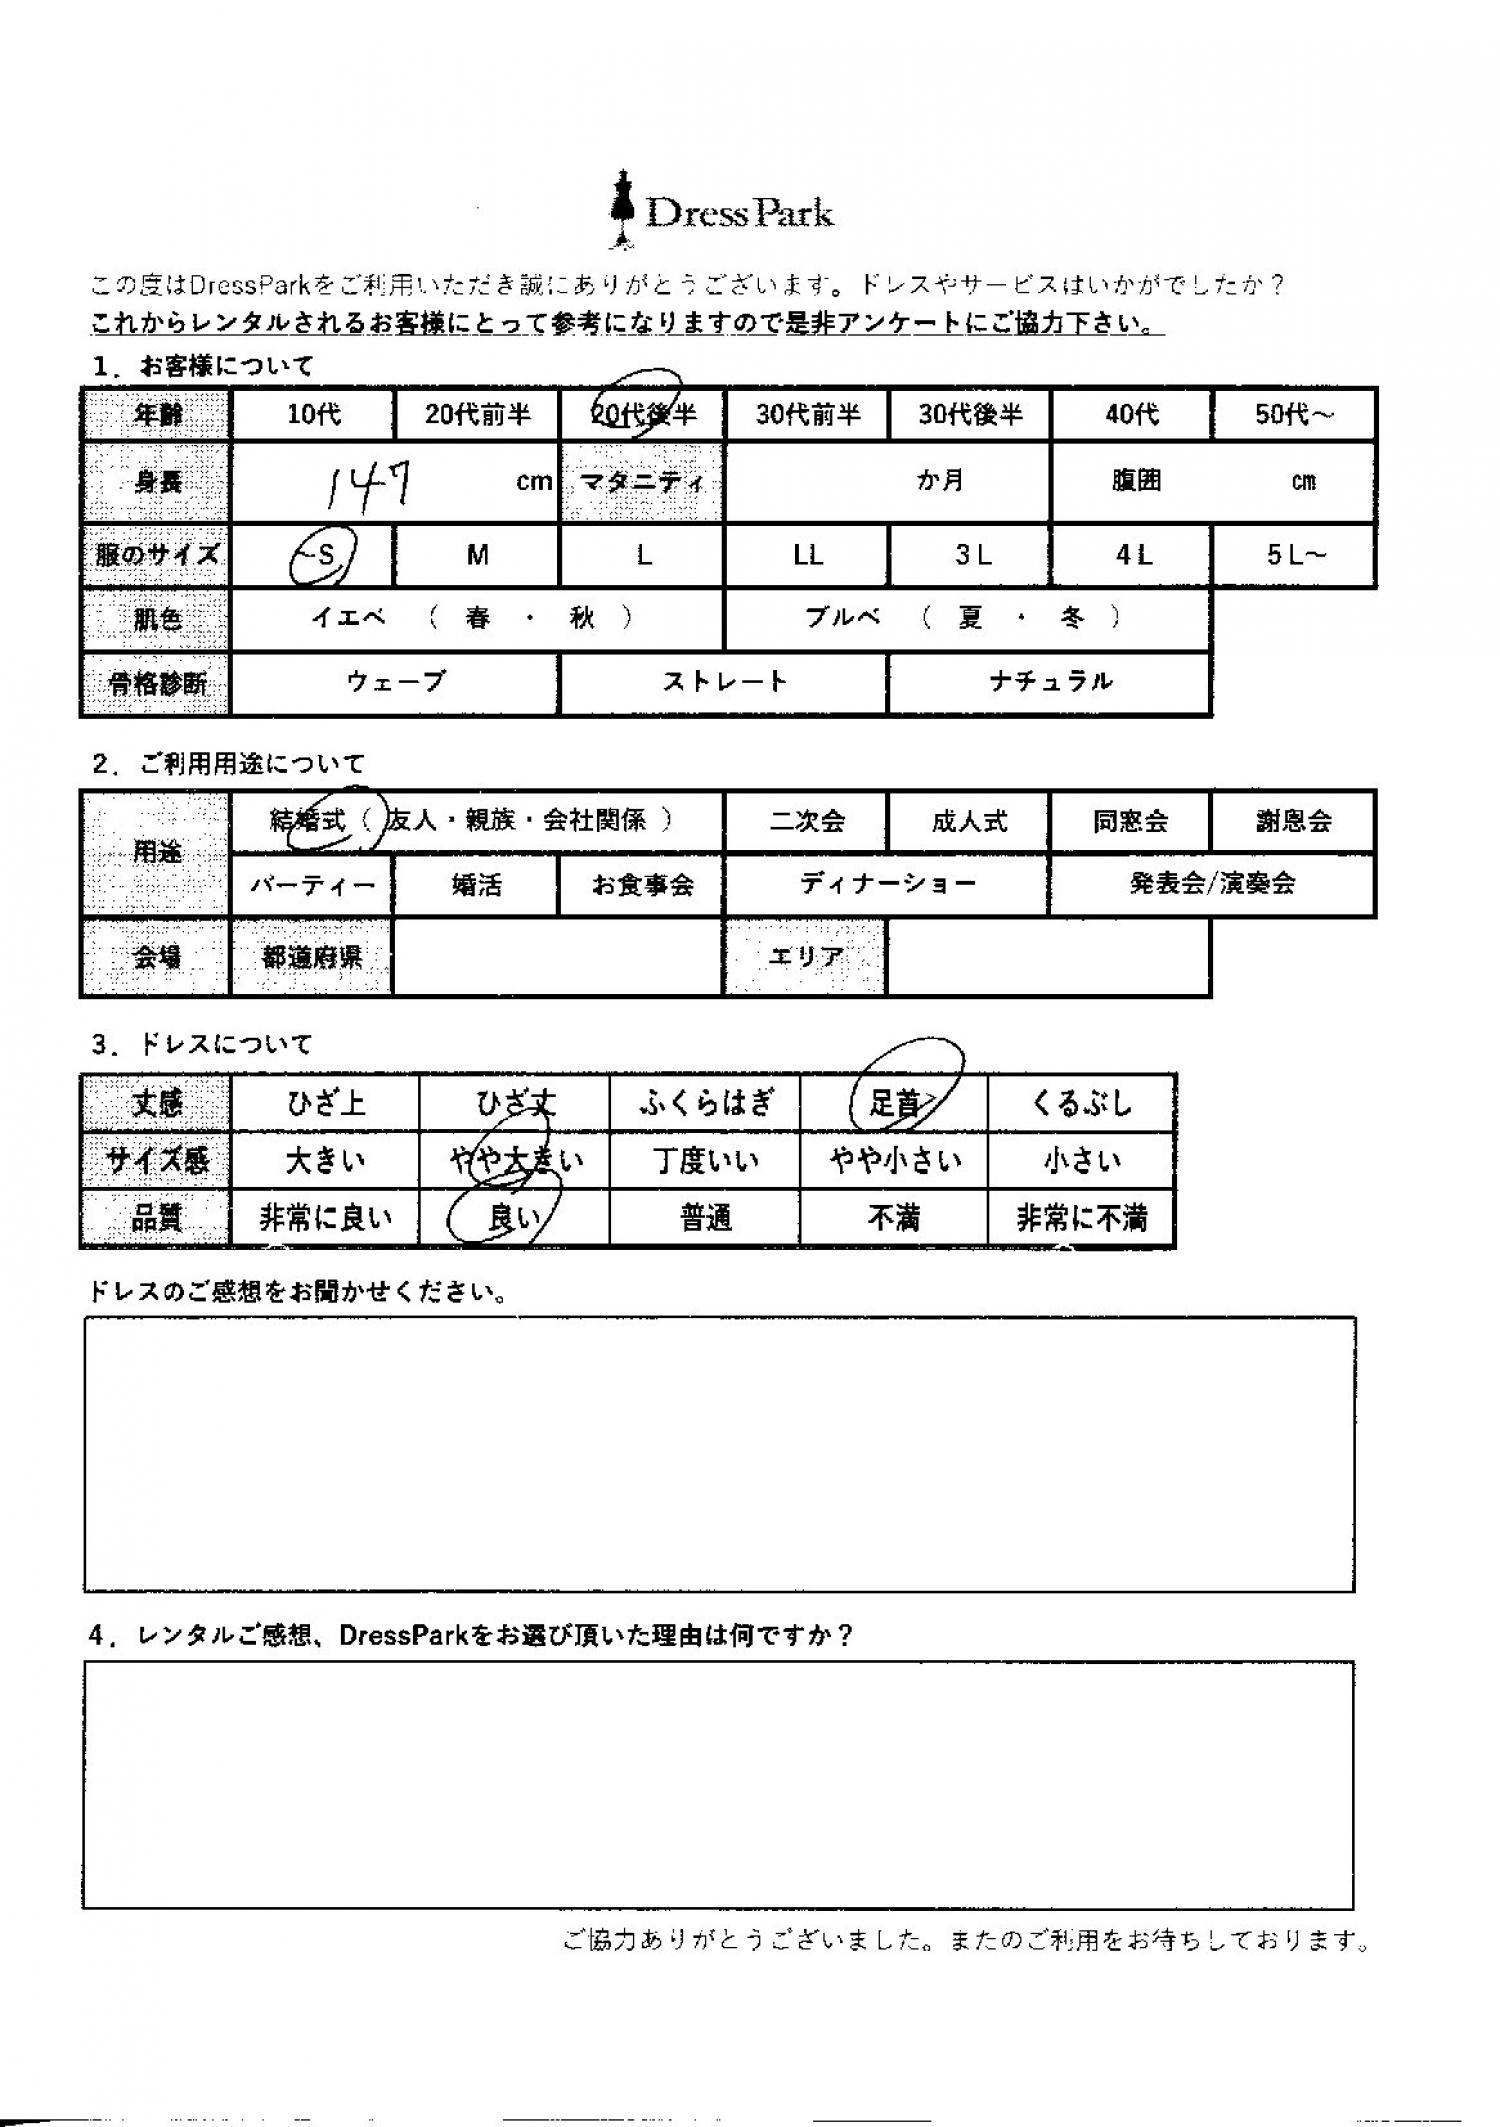 DressPark
この度はDressParkをご利用いただき誠にありがとうございます。ドレスやサービスはいかがでしたか？
これからレンタルされるお客様にとって参考になりますので是非アンケートにご協力下さい。
1．お客様について
年齢 10代 20代前半 20代後半 30代前半 30代後半 40代 50代～
身長 147 cm マタニティ か月 腹囲 cm
服のサイズ ~S M L LL 3L 4L 5L～
肌色 イエベ （ 春 ・ 秋 ） ブルベ （ 夏 ・ 冬 ）
骨格診断 ウェーブ ストレート ナチュラル
2．ご利用用途について
用途 結婚式（ 友人・親族・会社関係 ） 二次会 成人式 同窓会 謝恩会
パーティー 婚活 お食事会 ディナーショー 発表会/演奏会
会場 都道府県 エリア
3．ドレスについて
丈感 ひざ上 ひざ丈 ふくらはぎ 足首 くるぶし
サイズ感 大きい やや大きい 丁度いい やや小さい 小さい
品質 非常に良い 良い 普通 不満 非常に不満
ドレスのご感想をお聞かせください。
4．レンタルご感想、DressParkをお選び頂いた理由は何ですか？
ご協力ありがとうございました。またのご利用をお待ちしております。